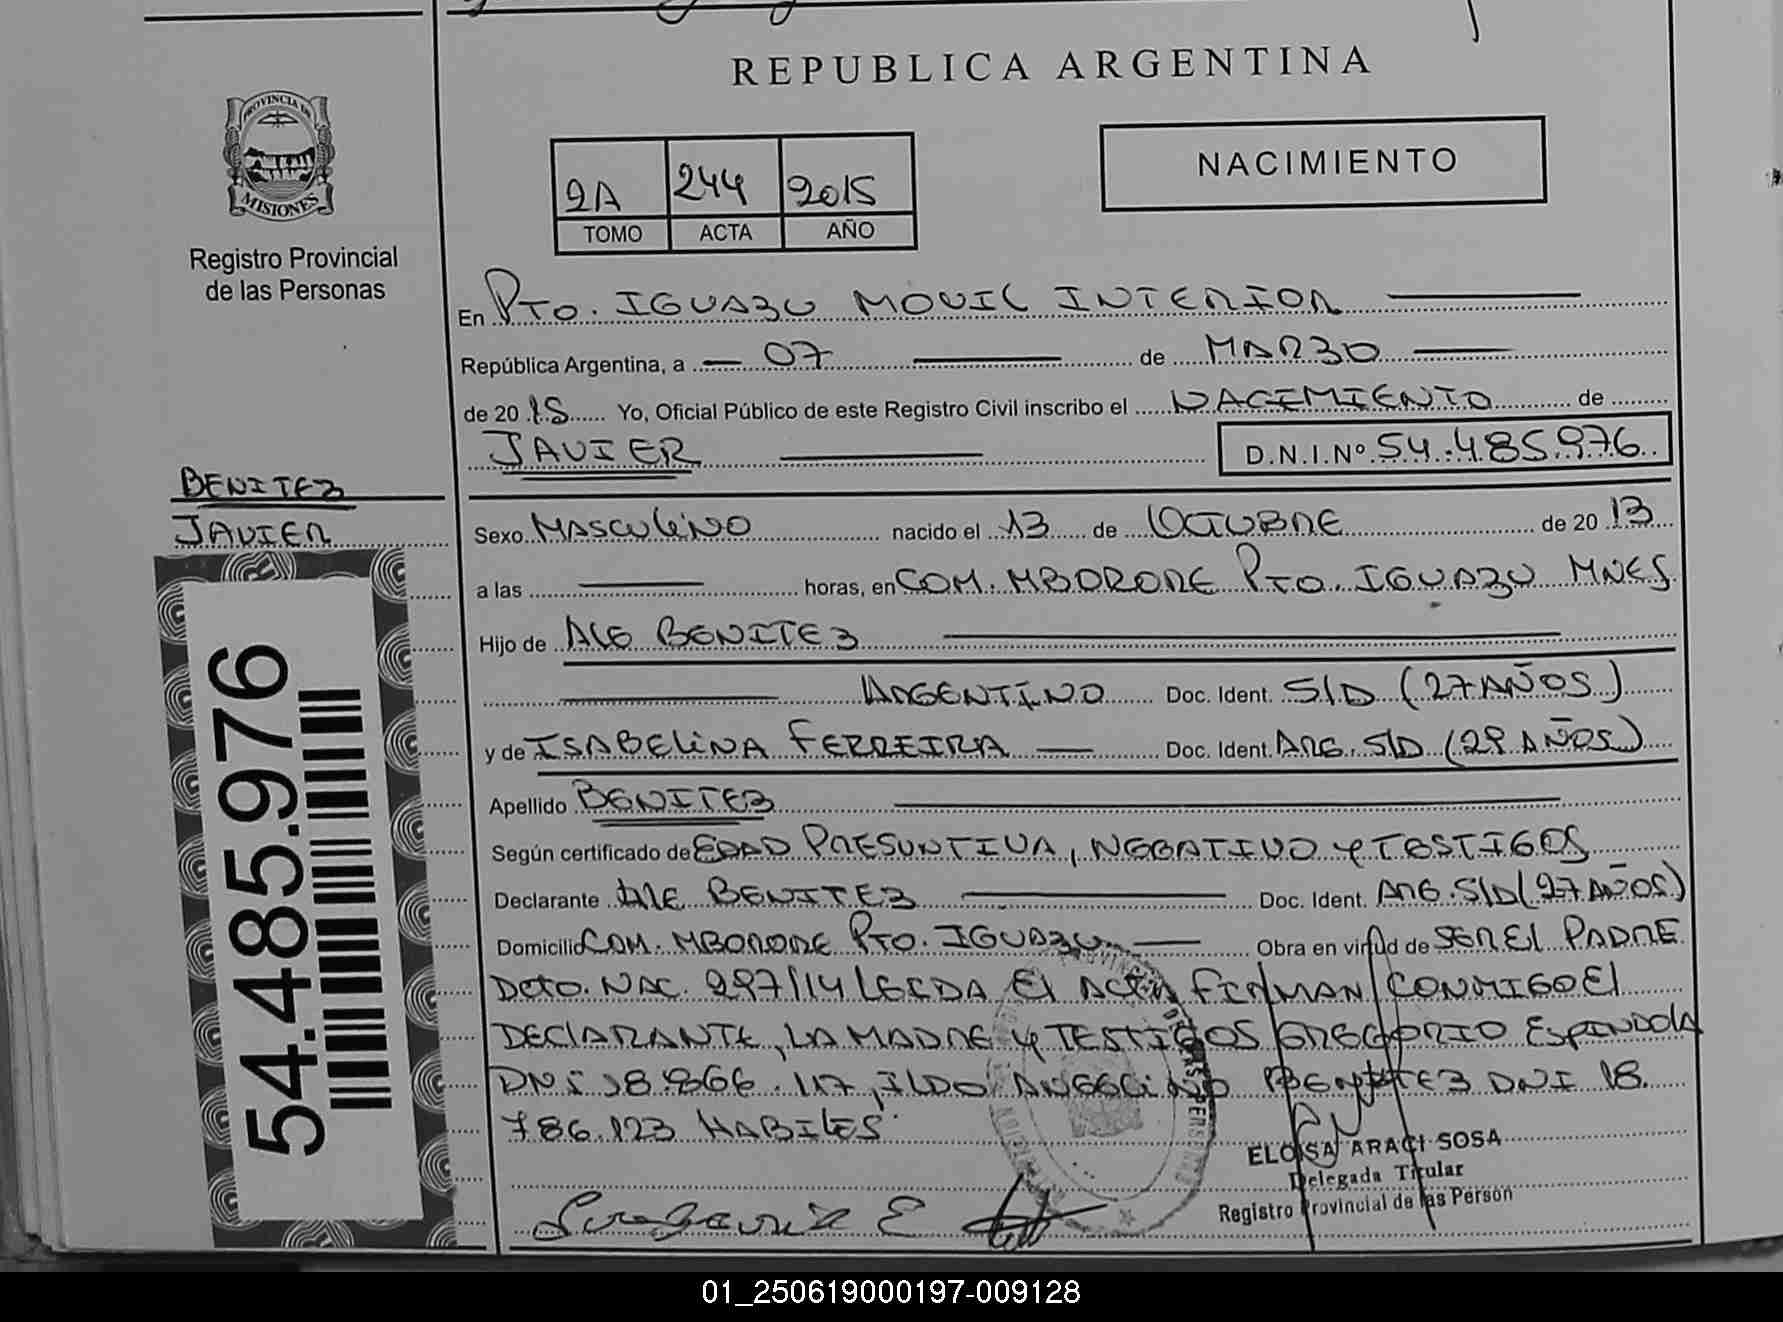 REPUBLICA ARGENTINA
PROVINCIA DE
MISIONES
Registro Provincial
de las Personas
2A 244 2015
TOMO ACTA AÑO
NACIMIENTO
En Pto. IGUAZU MOVIL INTERIOR
República Argentina, a 07 de MARZO
de 20 15 Yo, Oficial Público de este Registro Civil inscribo el NACIMIENTO de
JAVIER D.N.I.Nº 54.485.976
BENITEZ
JAVIER
Sexo MASCULINO nacido el 13 de OCTUBRE de 20 13
a las horas, en COM. MBORORE PTO. IGUAZU MNES
Hijo de ALE BENITEZ
ARGENTINO Doc. Ident. S/D (27 AÑOS)
y de ISABELINA FERREIRA Doc. Ident. ARG. S/D (29 AÑOS)
Apellido BENITEZ
Según certificado de EDAD PRESUNTIVA, NEGATIVO y TESTIGOS
Declarante ALE BENITEZ Doc. Ident. ARG. S/D (27 AÑOS)
Domicilio COM. MBORORE PTO. IGUAZU Obra en virtud de SER EL PADRE
Dcto. NAC. 297/14 LEIDA El ACTA FIRMAN CONMIGO El
DECLARANTE, LA MADRE y TESTIGOS GREGORIO ESPINDOLA
DNI 18.866.117, ILDO BENITEZ DNI 18.
786.123 HABILES
ELOISA ARACI SOSA
Delegada Titular
Registro Provincial de las Person
54.485.976
01_250619000197-009128